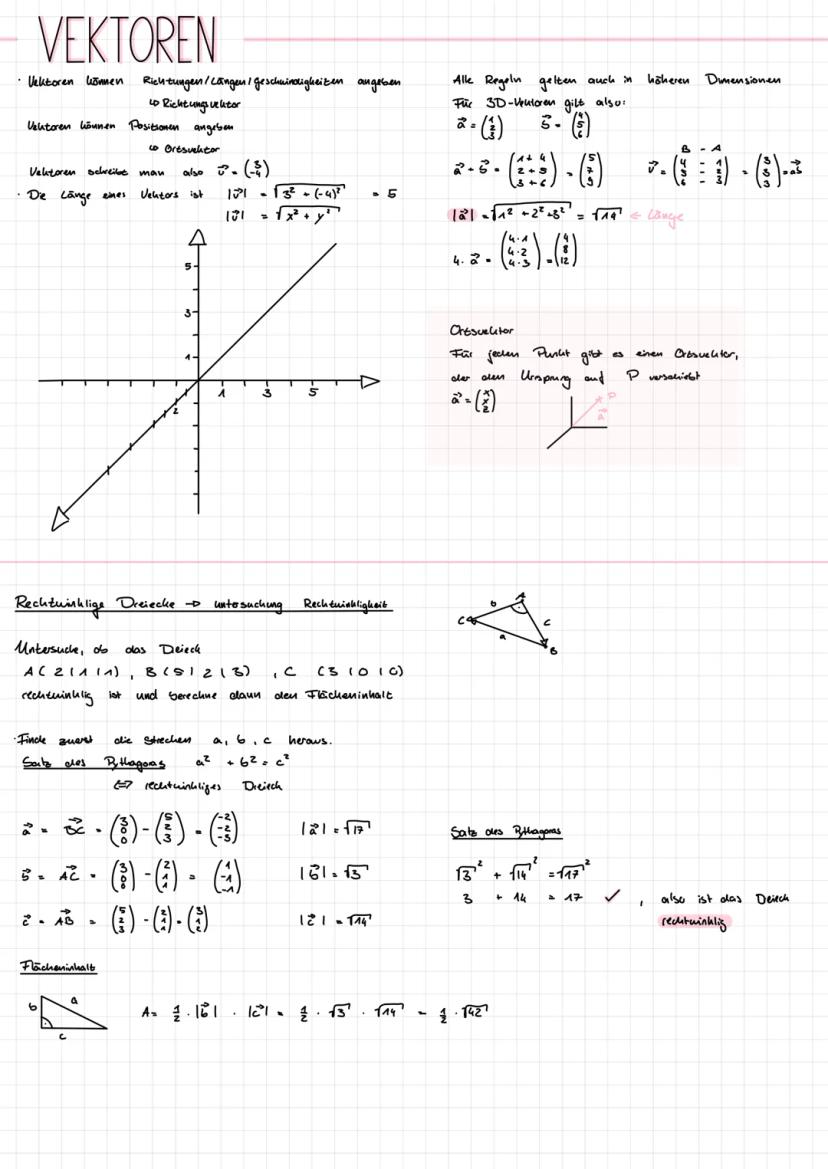 VEKTOREN
· Vektoren können Richtungen/Längen/Geschwindigkeiten angeben
↳ Richtungsvektor
Vektoren können Positionen angeben
↳ Ortsvektor
Vektoren schreibt man also v⃗ = (3 -4)
· Die Länge eines Vektors ist |v⃗| = √(3² + (-4)²) = 5
|v⃗| = √(x² + y²)
5
3
1
1 3 5
2
Alle Regeln gelten auch in höheren Dimensionen
Für 3D-Vektoren gilt also:
a⃗ = (1 2 3) b⃗ = (4 5 6)
B - A
a⃗ + b⃗ = (1+4 2+5 3+6) = (5 7 9) v⃗ = (4 - 1 5 - 2 6 - 3) = (3 3 3) = ab⃗
|a⃗| = √(1² + 2² + 3²) = √14 ← Länge
4 · a⃗ = (4·1 4·2 4·3) = (4 8 12)
Ortsvektor
Für jeden Punkt gibt es einen Ortsvektor,
der den Ursprung auf P verschiebt
a⃗ = (x y z)
P
a⃗
Rechtwinklige Dreiecke → untersuchung Rechtwinkligkeit
A
b
C c
a
B
Untersuche, ob das Deieck
A(2|1|1), B(5|2|3), C (3|0|0)
rechtwinklig ist und berechne dann den Flächeninhalt
· Finde zuerst die Strecken a, b, c heraus.
Satz des Pythagoras a² + b² = c²
⇔ rechtwinkliges Dreieck
a⃗ = BC⃗ = (3 0 0) - (5 2 3) = (-2 -2 -3) |a⃗| = √17
b⃗ = AC⃗ = (3 0 0) - (2 1 1) = (1 -1 -1) |b⃗| = √3
c⃗ = AB⃗ = (5 2 3) - (2 1 1) = (3 1 2) |c⃗| = √14
Satz des Pythagoras
√3² + √14² = √17²
3 + 14 = 17 ✓, also ist das Deieck
rechtwinklig
Flächeninhalt
b a
c
A = 1/2 · |b⃗| · |c⃗| = 1/2 · √3 · √14 = 1/2 · √42